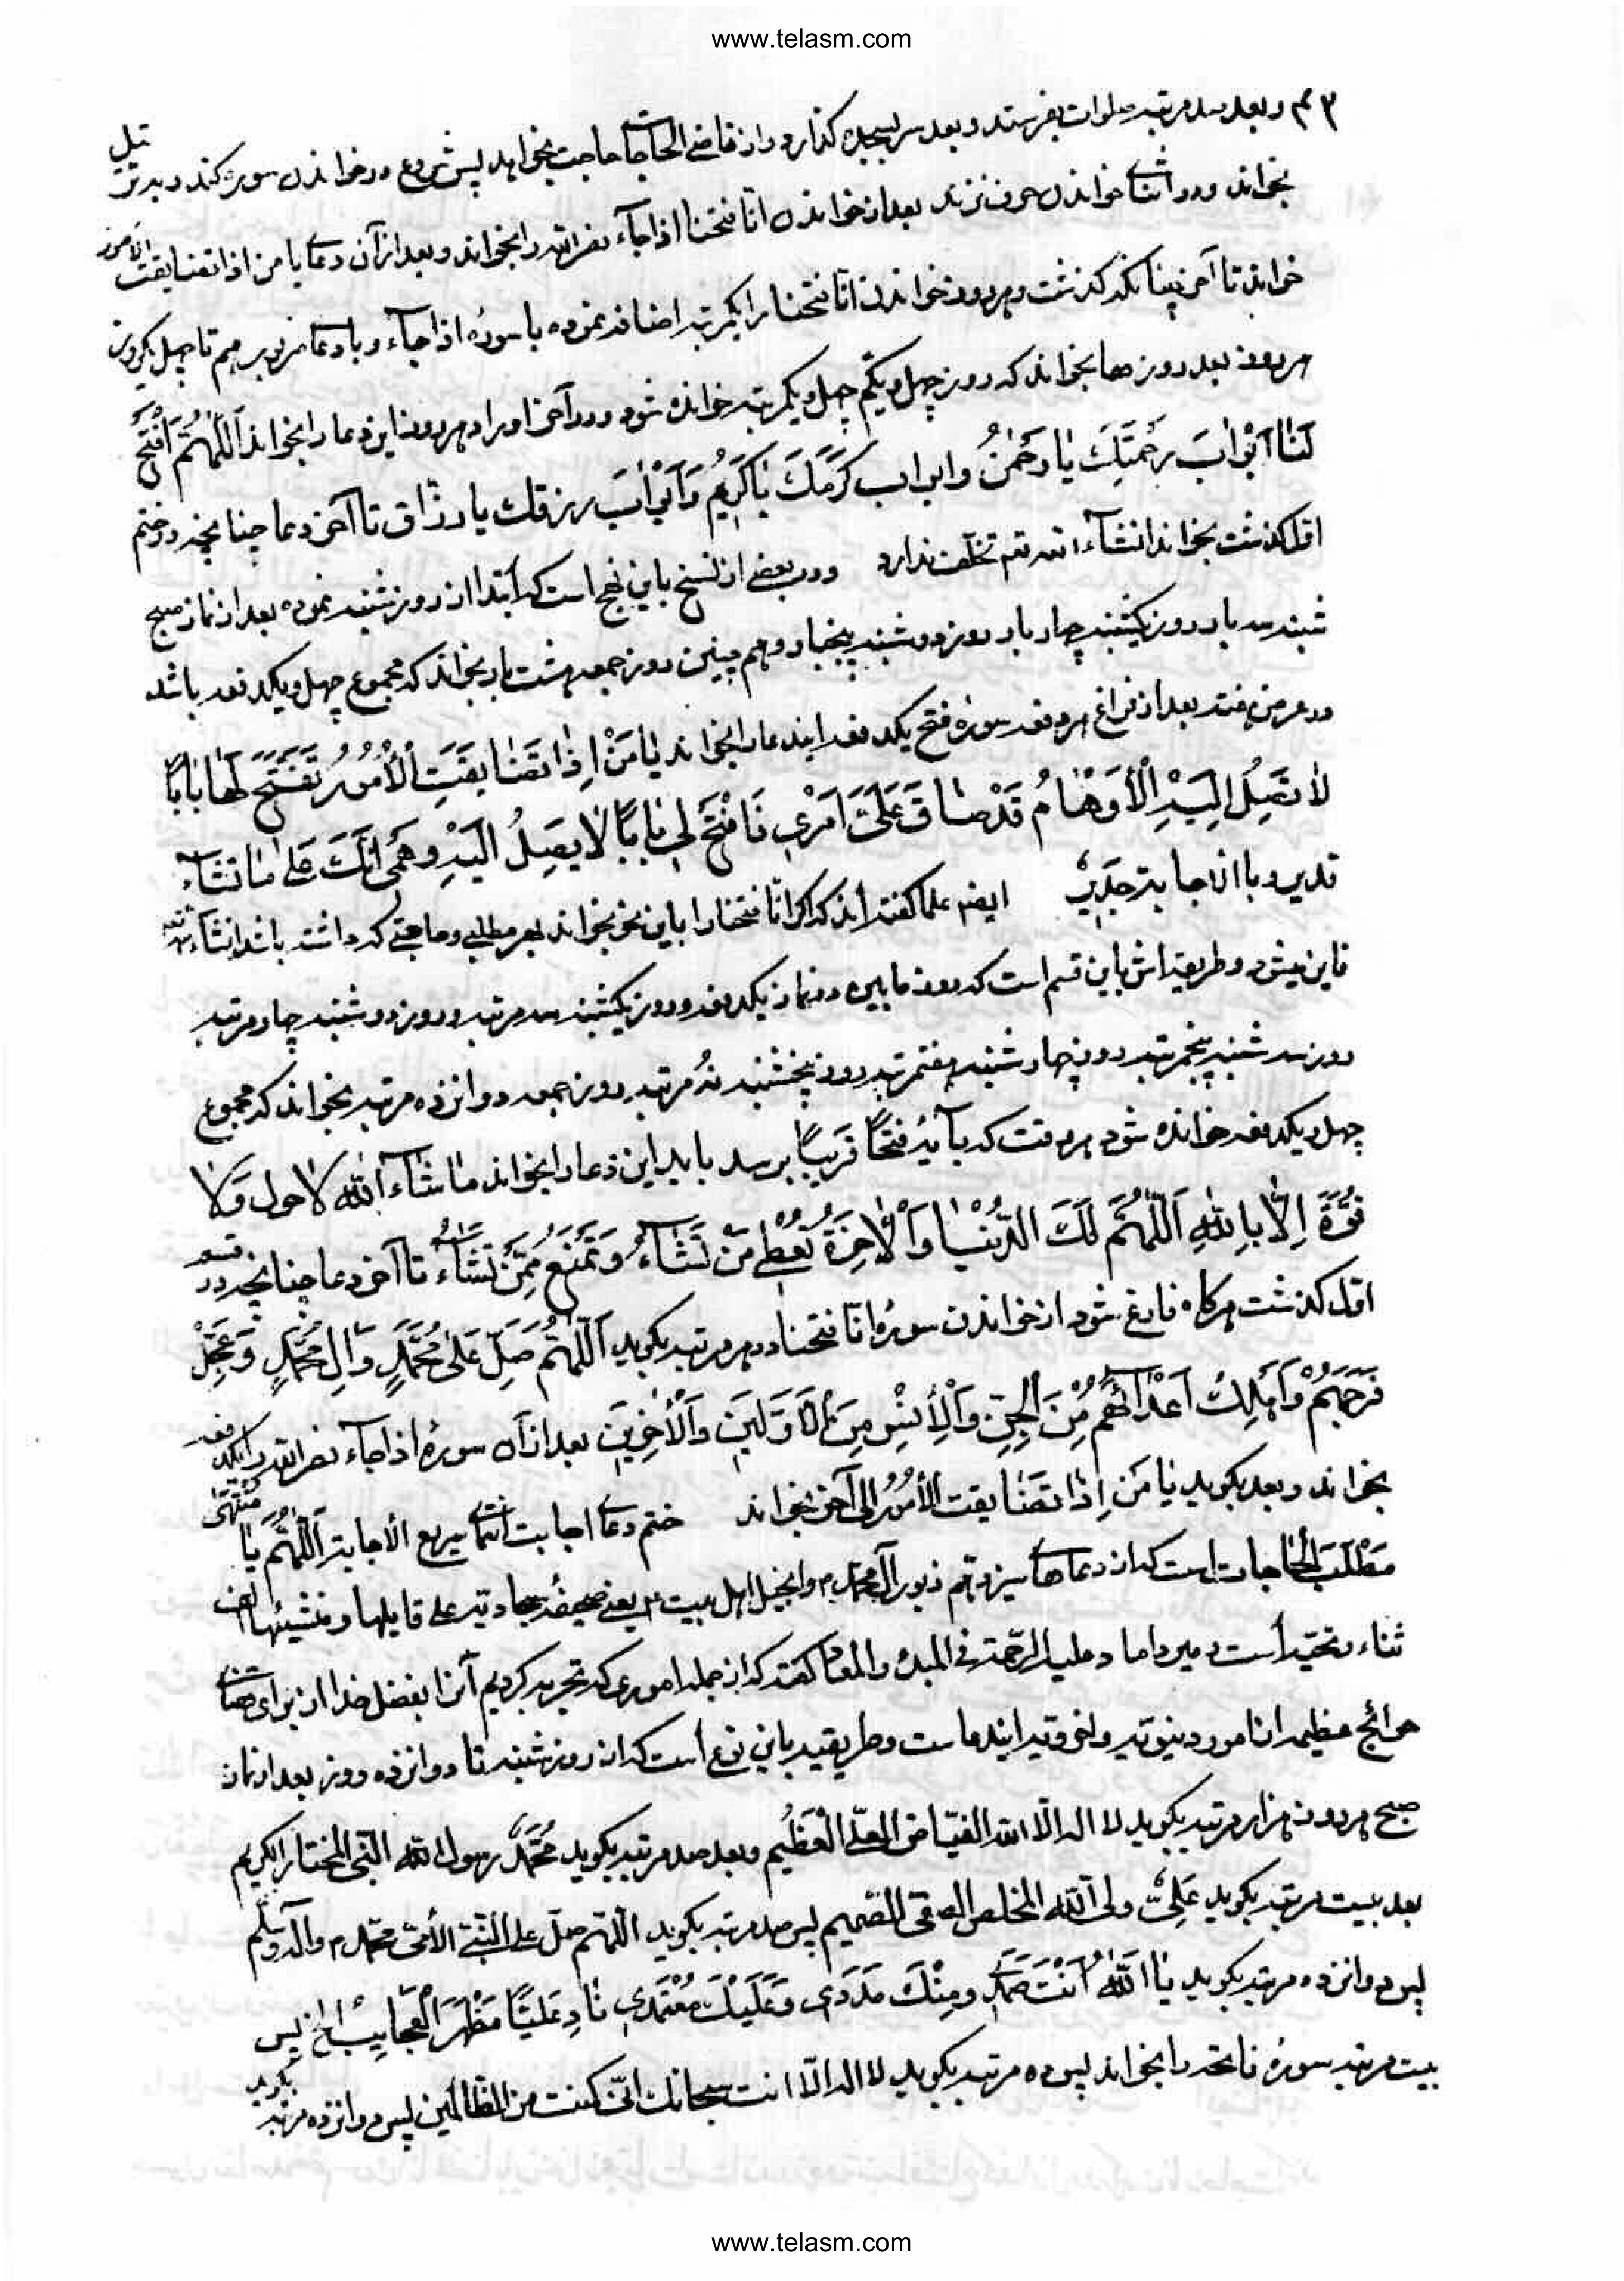 www.telasm.com
و بعد سه مرتبه صلوات بفرستد و بعد سر بسجده گذارد و از قاضی الحاجات حاجت بخواهد پس شروع در خواندن سوره کند و به ترتیل
بخواند و در اثنای خواندن حرف نزند بعد از خواندن انا فتحنا اذا جاء نصرالله را بخواند و بعد از آن دعای یا من اذا تضایقت الامور
خواند تا آخر چنانکه گذشت و هر روز خواندن انا فتحنا را یکمرتبه اضافه نموده با سورهٔ اذا جاء و با دعا مزبور هم تا چهل یکروز
هر روز بعد روزها بخواند که روز چهل و یکم چهل و یکمرتبه خوانده شود و در آخر اوراد هر روز این دعا را بخواند اَللّهُمَّ افْتَحْ
لَنا اَبْوابَ رَحْمَتِكَ یا رَحْمنُ وابواب کَرَمَكَ یا کَریمُ وَ اَبْوابَ رزقك یا رزّاق تا آخر دعا چنانچه در ختم
اول گذشت بخواند انشاء الله تعم تخلف ندارد و در بعضی از نسخ باین نهج است که ابتدا از روز شنبه نموده بعد از نماز صبح
شنبه سه بار روز یکشنبه چهار بار روز دوشنبه پنجبار و هم چنین روز جمعه هشت بار بخواند که مجموع چهل و یکدفعه باشد
در عرض هفته بعد از فراغ هر دفعه سوره فتح یکدفعه ایندعا را بخواند یا مَنْ اِذا تَضایَقَتِ الْاُمُورُ تَفَتَّحَ لَها باباً
لا تَصِلُ اِلَیْهِ الْاَوْهامُ قَدْ ضاقَ عَلَیَّ اَمْری فَافْتَحْ لی باباً لا یَصِلُ اِلَیْهِ وَهْمی اِنَّكَ عَلی ما تَشاء
قدیر و بالاجابة جدیر ایضا علما گفته اند که اگر انا فتحنا را باین نحو بخواند بهر مطلبی و حاجتی که داشته باشد انشاءالله
فایز میشود و طریقه اش باین قسم است که روز مابین دو نماز یکدفعه و روز یکشنبه سه مرتبه و روز دوشنبه چهار مرتبه
روز سه شنبه پنجمرتبه روز چهارشنبه هفتمرتبه روز پنجشنبه نُه مرتبه روز جمعه دوانزده مرتبه بخواند که مجموع
چهل و یکدفعه خوانده شود هر وقت که بآیهٔ فتحاً قریباً برسد باید این دعا را بخواند ما شاءَ اللّه لا حول وَلا
قُوَّةَ اِلّا بِاللهِ اَللّهُمَّ لَكَ الدُّنْیا وَالْاخِرَةُ تُعْطی مَنْ تَشاءُ وَتَمْنَعُ مِمَّنْ تَشاءُ تا آخر دعا چنانچه در قسم
اول گذشت هرگاه فارغ شود از خواندن سورهٔ انا فتحنا در هر مرتبه بگوید اَللّهُمَّ صَلِّ عَلی مُحَمَّدٍ وَ آلِ مُحَمَّدٍ وَ عَجِّلْ
فَرَجَهُمْ وَ اَهْلِكْ اَعْدائَهُمْ مِنَ الْجِنِّ وَالْاِنْسِ مِنَ الْاَوَّلینَ وَالْاخِرینَ بعد از آن سورهٔ اذا جاء نصرالله را یکدفعه
بخواند و بعد بگوید یا مَن اِذا تَضایقت الاُمُورُ الی آخر بخواند ختم دعای اجابت انتمای سریع الاجابة اَللّهُمَّ یا مُنْتَهی
مَطْلَبِ الحاجات است که از دعاهای سیزدهم زبور آل محمد و انجیل اهل بیت یعنی صحیفهٔ سجادیه علی قایلها و منشئها الف
ثناء و تحیة است میر داماد علیه الرحمة در المبدء والمعاد گفته که از جمله اموری که تجربه کردیم آنرا بفضل خدا از برای قضای
حوائج عظیمه از امور دینویه و اخرویه ایندعاست و طریقه باین نوع است که از روز شنبه تا دوانزده روز بعد از نماز
صبح هر روز هزار مرتبه بگوید لا اله الّا الله الفیّاض العلی الْعَظیمُ و بعد صد مرتبه بگوید مُحَمَّدٌ رسول الله النّبی المختار الکریم
بعد بیست مرتبه بگوید عَلِیٌّ ولی الله المخلص الصفی الصمیم پس صد مرتبه بگوید اللّهم صلّ علی النبی الأمی محمد و آله و سلم
پس دوانزده مرتبه بگوید یا اَللّهُ اَنْتَ صَمَدی ومِنْكَ مَدَدی وَعَلَیْكَ مُعْتَمَدی نادِ عَلِیّاً مَظْهَرَ الْعَجائِبِ الخ پس
بیست مرتبه سورهٔ فاتحه را بخواند پس ده مرتبه بگوید لا اله الّا انت سبحانك انّی کنت من الظالمین پس دوانزده مرتبه بگوید
www.telasm.com